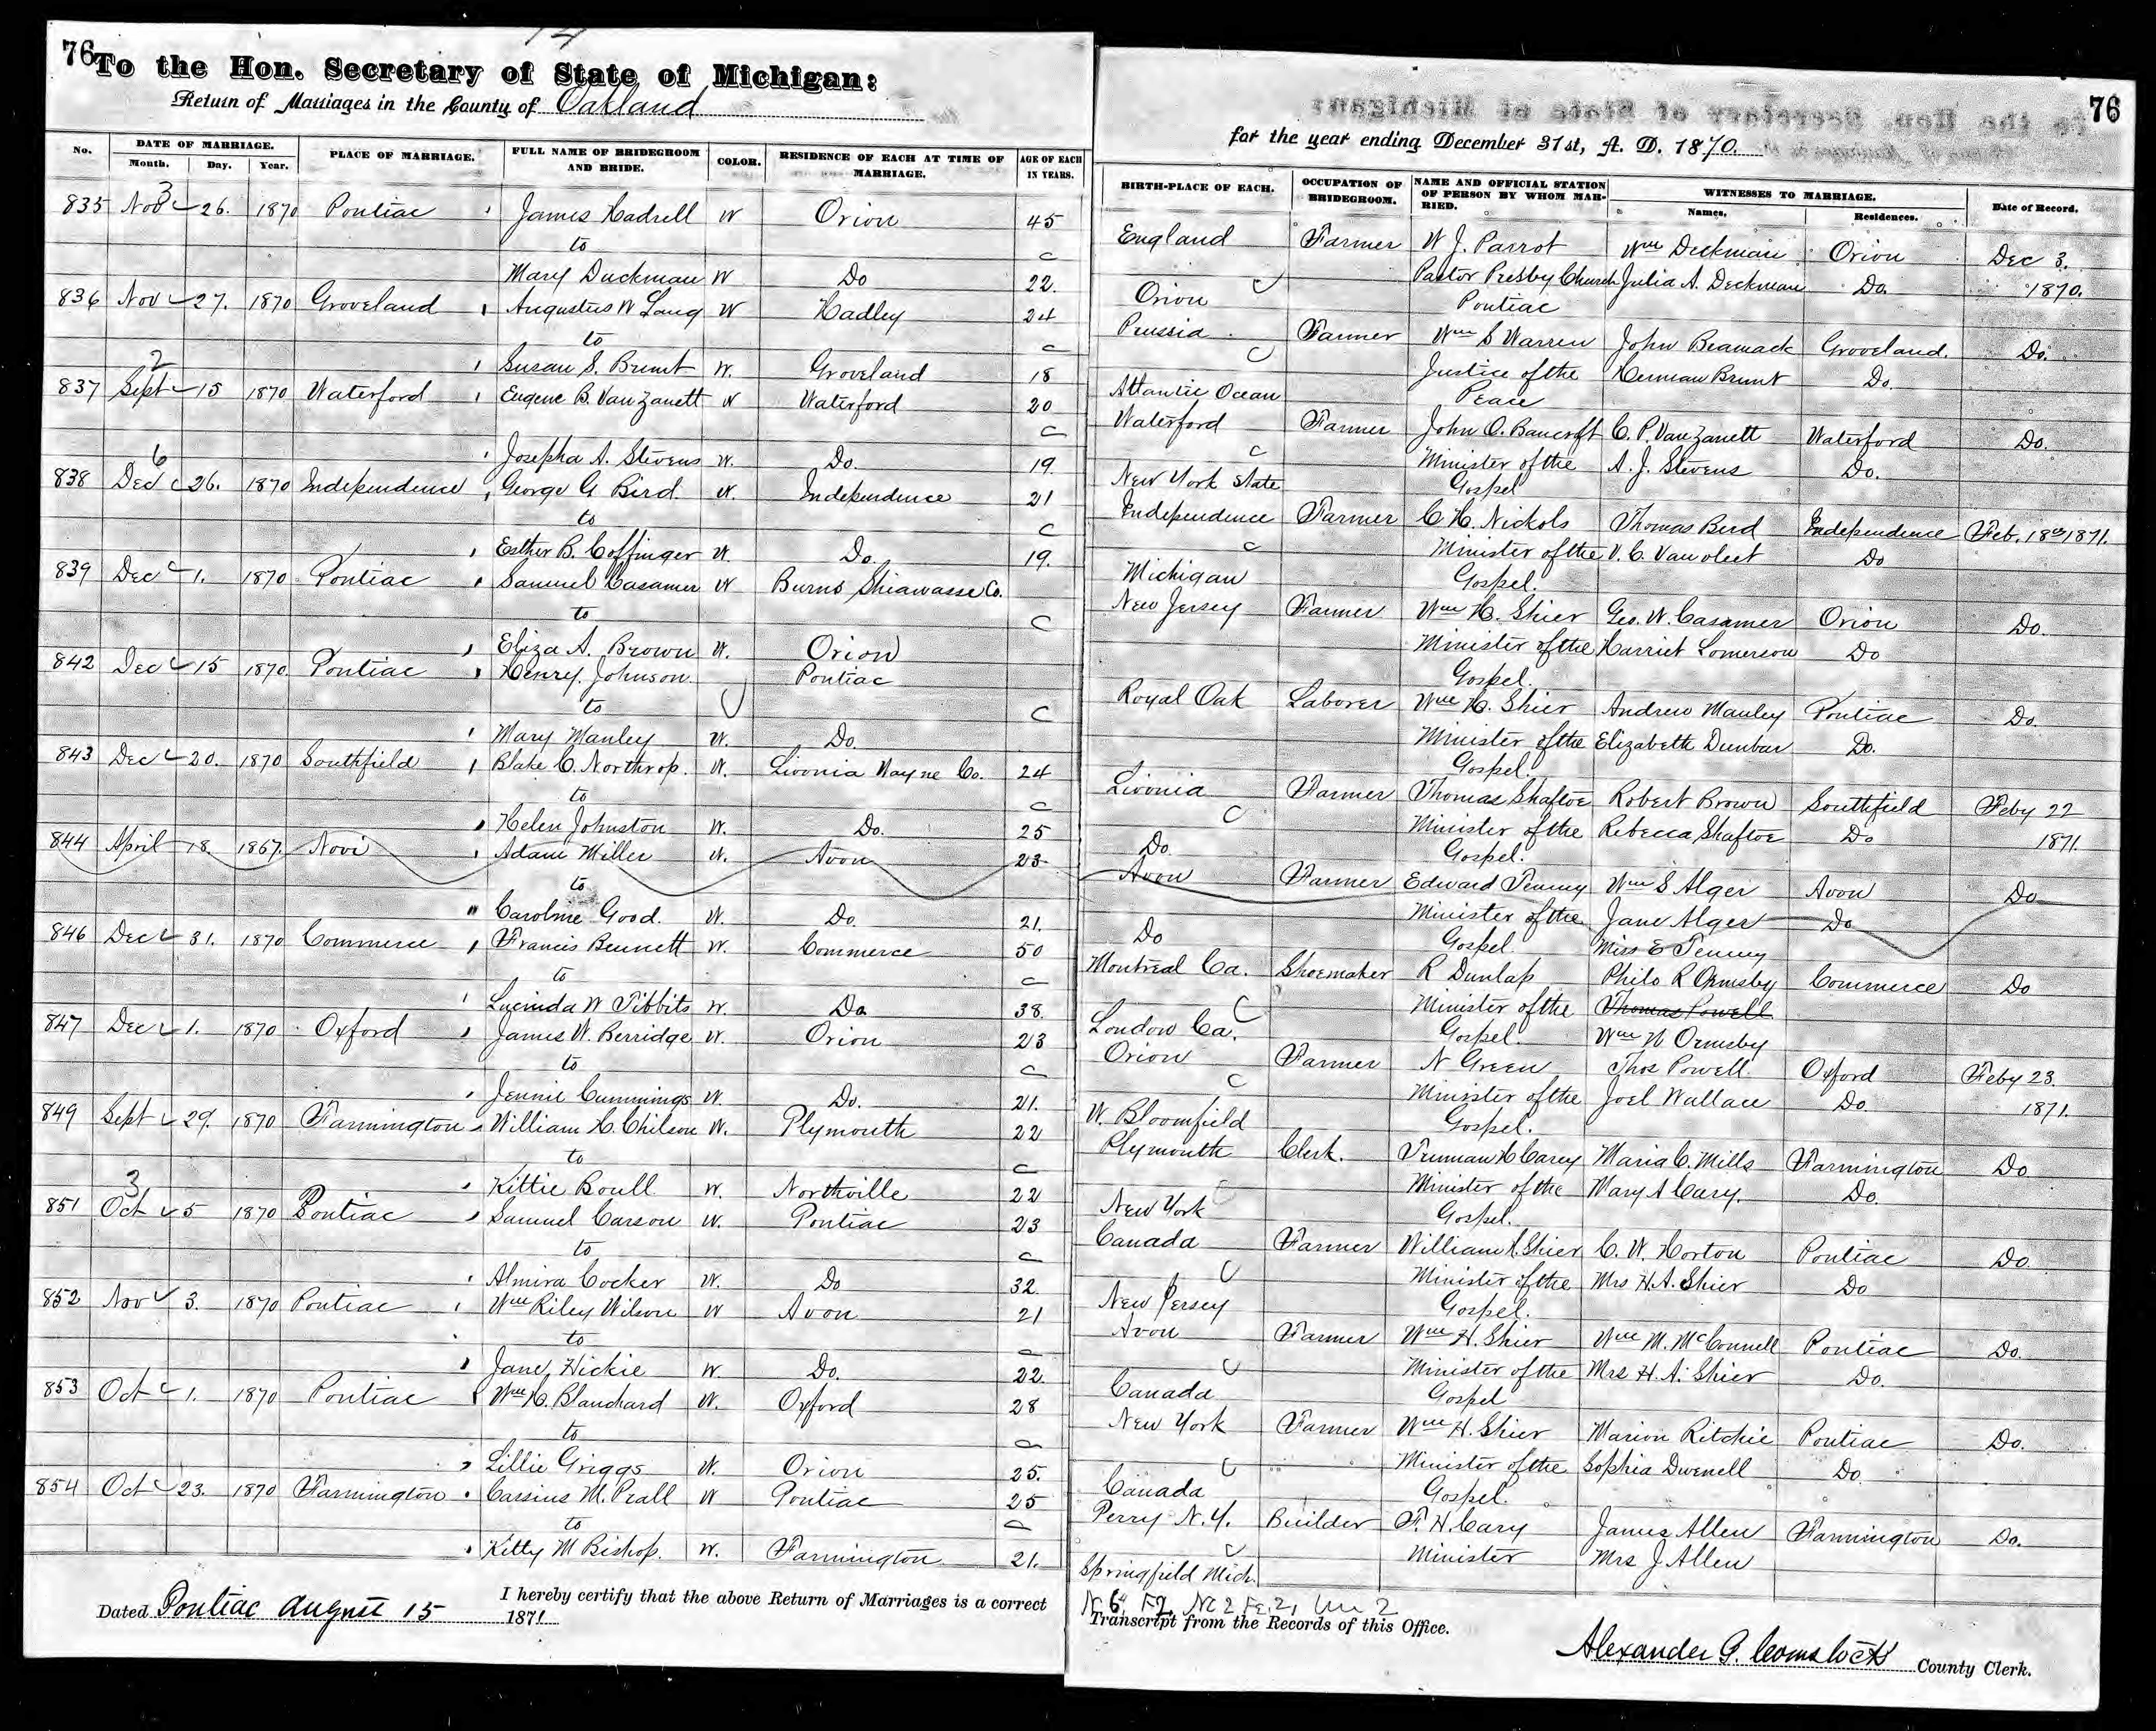 76 To the Hon. Secretary of State of Michigan:
Return of Marriages in the County of Oakland
for the year ending December 31st, A. D. 1870. 76
No. DATE OF MARRIAGE. Month. Day. Year. PLACE OF MARRIAGE. FULL NAME OF BRIDEGROOM AND BRIDE. COLOR. RESIDENCE OF EACH AT TIME OF MARRIAGE. AGE OF EACH IN YEARS.
BIRTH-PLACE OF EACH. OCCUPATION OF BRIDEGROOM. NAME AND OFFICIAL STATION OF PERSON BY WHOM MARRIED. WITNESSES TO MARRIAGE. Names. Residences. Date of Record.
835 Nov 26. 1870 Pontiac James Hadrell W Orion 45 England Farmer W J. Parrot Wm Deckman Orion Dec 3.
to
Mary Duckman W Do 22. Orion Pastor Presby Church Julia A. Deckman Do. 1870.
Pontiac
836 Nov 27. 1870 Groveland Augustus W Lang W Hadley 24 Prussia Farmer Wm S Warren John Bramack Groveland. Do.
to
Susan S. Brunt W. Groveland 18 Atlantic Ocean Justice of the Herman Brunt Do.
Peace
837 Sept 15 1870 Waterford Eugene B. Vanzanett W Waterford 20 Waterford Farmer John O. Bancroft C. P. Vanzanett Waterford Do.
Josepha A. Stevens W. Do. 19. New York State Minister of the A. J. Stevens Do.
Gospel
838 Dec 26. 1870 Independence George G Bird. W. Independence 21 Independence Farmer C. H. Nickols Thomas Bird Independence Feb. 18th 1871.
to
Esther B. Coffinger W. Do. 19. Michigan Minister of the V. C. Vanvleet Do
Gospel.
839 Dec 1. 1870. Pontiac Samuel Casamer W Burns Shiawasse Co. New Jersey Farmer Wm H. Shier Geo. W. Casamer Orion Do.
to
Eliza A. Brown W. Orion Minister of the Harriet Lomerson Do
Gospel.
842 Dec 15 1870. Pontiac Henry Johnson Pontiac Royal Oak Laborer Wm H. Shier Andrew Manley Pontiac Do.
to
Mary Manley W. Do. Minister of the Elizabeth Dunbar Do.
Gospel.
843 Dec 20. 1870 Southfield Blake C. Northrop. W. Livonia Wayne Co. 24 Livonia Farmer Thomas Shaftoe Robert Brown Southfield Feby 22
to
Helen Johnston W. Do. 25 Do. Minister of the Rebecca Shaftoe Do 1871.
Gospel.
844 April 18. 1867. Novi Adam Miller W. Avon 23 Avon Farmer Edward Tenny Wm S Alger Avon Do
to
Caroline Good. W. Do. 21. Do Minister of the Jane Alger Do
Gospel Miss E Tenny
846 Dec 31. 1870 Commerce Francis Bennett W. Commerce 50 Montreal Ca. Shoemaker R Dunlap Philo R Ormsby Commerce Do
to
Lucinda W Tibbits W. Do. 38. London Ca. Minister of the Thomas Powell
Gospel. Wm N Ormsby
847 Dec 1. 1870. Oxford James W. Berridge W. Orion 23 Orion Farmer N Green Thos Powell. Oxford Feby 23.
to
Jennie Cummings W. Do. 21. W. Bloomfield Minister of the Joel Wallace Do. 1871.
Gospel.
849 Sept 29. 1870 Farmington William H. Chilson W. Plymouth 22 Plymouth Clerk. Truman H Carey Maria C. Mills Farmington Do
to
Kittie Boull W. Northville 22 New York Minister of the Mary A Cary. Do.
Gospel.
851 Oct 5 1870 Pontiac Samuel Carson W. Pontiac 23 Canada Farmer William H. Shier C. W. Horton Pontiac Do.
to
Almira Cocker W. Do 32. New Jersey Minister of the Mrs H. A. Shier Do
Gospel.
852 Nov 3. 1870 Pontiac Wm Riley Wilson W Avon 21 Avon Farmer Wm H. Shier Wm M. McConnell Pontiac Do.
to
Jane Hickie W. Do. 22. Canada Minister of the Mrs H. A. Shier Do.
Gospel
853 Oct 1. 1870 Pontiac Wm H. Blanchard W. Oxford 28 New York Farmer Wm H. Shier Marion Ritchie Pontiac Do.
to
Lillie Griggs W. Orion 25. Canada Minister of the Sophia Dwenell Do.
Gospel.
854 Oct 23. 1870 Farmington Cassius M. Prall W Pontiac 25 Perry N. Y. Builder T. H. Cary James Allen Farmington Do.
to
Kitty M Bishop. W. Farmington 21. Springfield Mich. Minister Mrs J Allen
Dated Pontiac August 15 1871 I hereby certify that the above Return of Marriages is a correct
Transcript from the Records of this Office.
Alexander G. Comstock County Clerk.